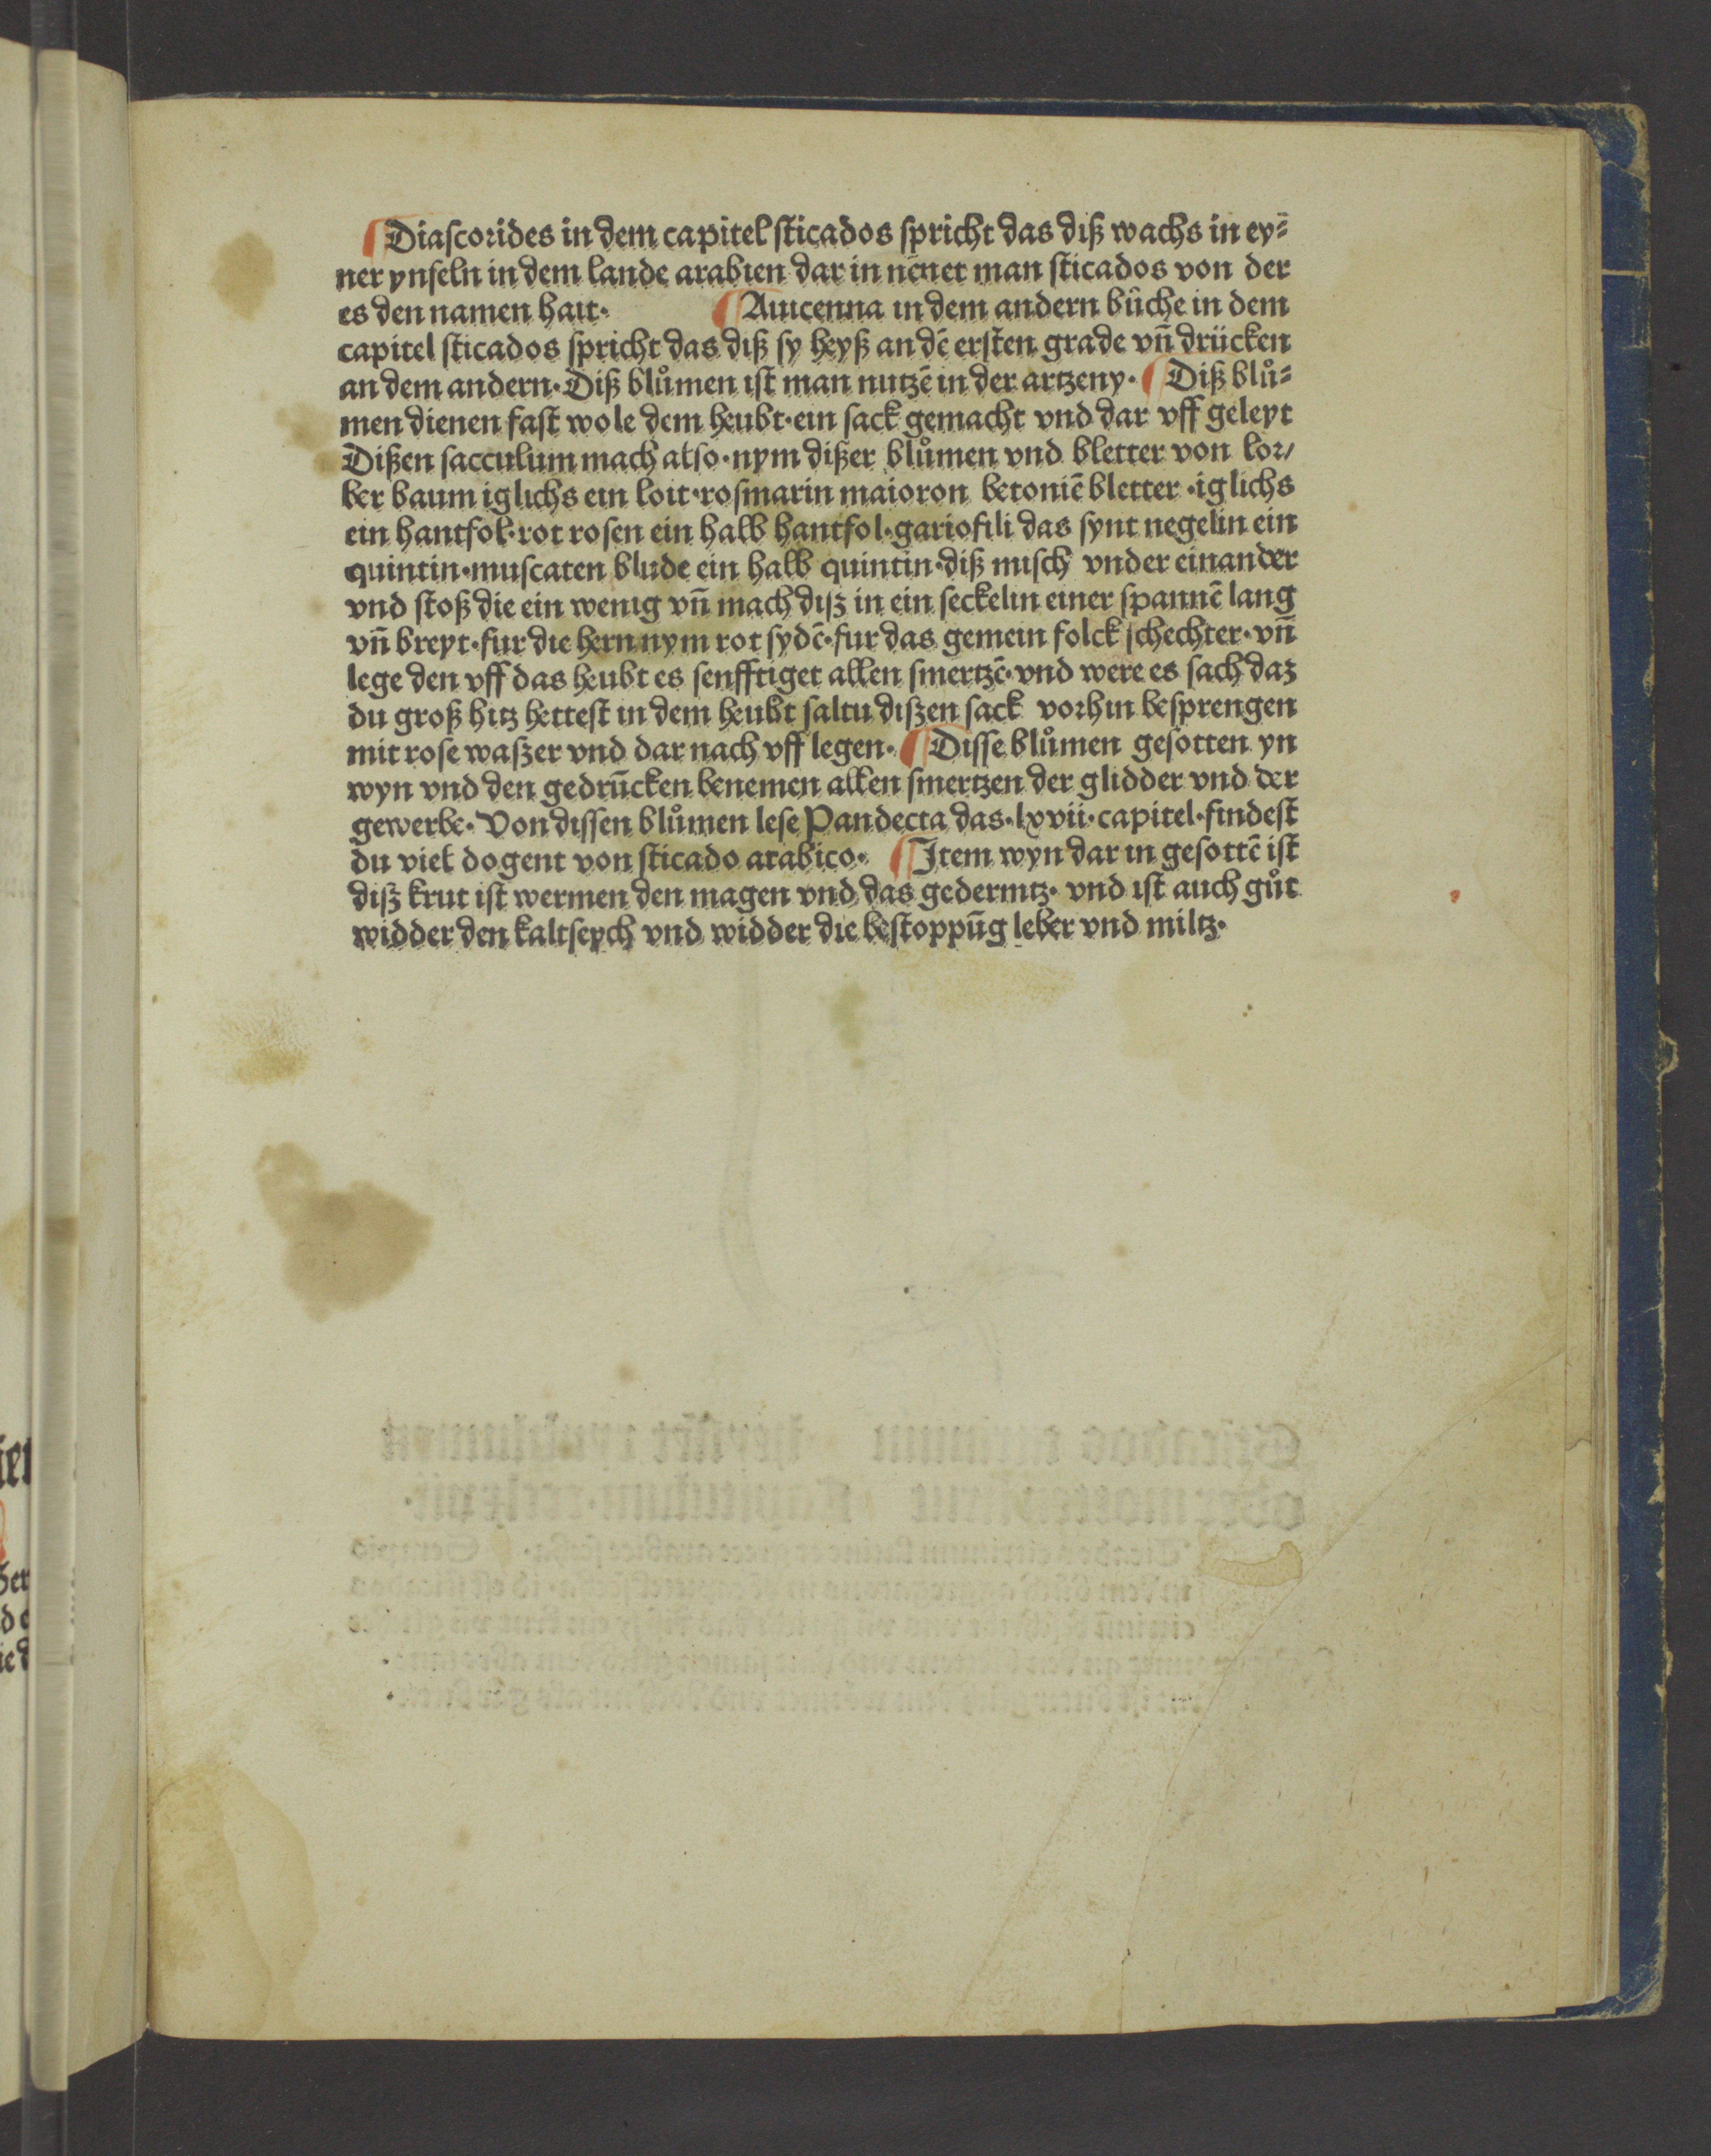 ¶ Diaſcorides in dem capitel ſticados ſpricht das diß wachs in ey⸗
ner ynſeln in dem lande arabien dar in nēnet man ſticados von der
es den namen hait· ¶ Auicenna in dem andern bůche in dem
capitel ſticados ſpricht das diß ſy heyß an dē erſten grade vñ drücken
an dem andern· Diß blůmen iſt man nutzē in der artzeny· ¶ Diß blů⸗
men dienen faſt wole dem heubt· ein ſack gemacht vnd dar vff geleyt
Dißen ſacculum mach alſo· nym dißer blůmen vnd bletter von lor/
ber baum iglichs ein loit· roſmarin maioron betoniē bletter ·iglichs
ein hantfol· rot roſen ein halb hantfol· gariofili das ſynt negelin ein
quintin· muſcaten blude ein halb quintin· diß miſch vnder einander
vnd ſtoß die ein wenig vñ mach diß in ein ſeckelin einer ſpannē lang
vñ breyt· fur die hern nym rot ſydē· fur das gemein folck ſchechter· vñ
lege den vff das heubt es ſenfftiget allen ſmertzē· vnd were es ſach daz
du groß hitz hetteſt in dem heubt ſaltu dißen ſack vorhin beſprengen
mit roſe waßer vnd dar nach vff legen· ¶ Diſſe blůmen geſotten yn
wyn vnd den gedrūcken benemen allen ſmertzen der glidder vnd der
gewerbe· Von diſſen blůmen leſe Pandecta das· lxvii· capitel· findeſt
du viel dogent von ſticado arabico· ¶ Item wyn dar in geſottē iſt
diß krut iſt wermen den magen vnd das gedermtz· vnd iſt auch gůt
widder den kaltſeych vnd widder die beſtoppūg leber vnd miltz·